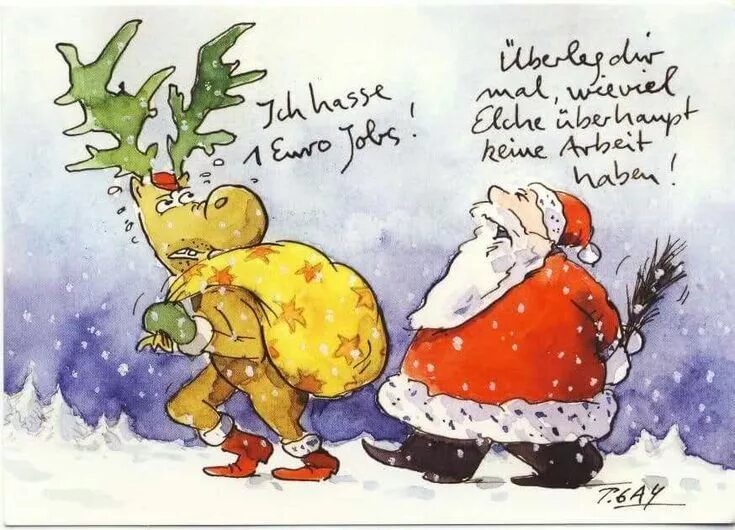 Ich hasse
1 Euro Jobs!
Überleg dir
mal, wieviel
Elche überhaupt
keine Arbeit
haben!
T. GAY